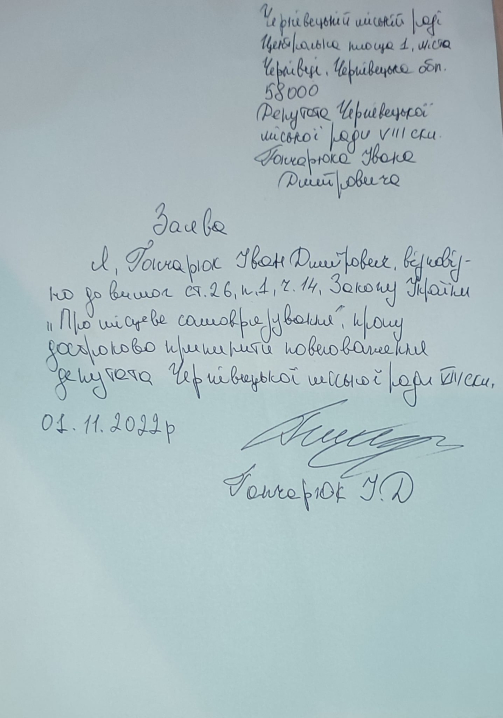 Чернівецькій міській раді
Центральна площа 1, міста
Чернівці, Чернівецька обл.
58000
Депутата Чернівецької
міської ради VIII скл.
Гончарюка Івана
Дмитровича
Заява
Я, Гончарюк Іван Дмитрович, відповід-
но до вимог ст.26, п.1, ч.14, Закону України
"Про місцеве самоврядування", прошу
достроково припинити повноваження
депутата Чернівецької міської ради VIII скл.
01.11.2022р
Гончарюк І.Д